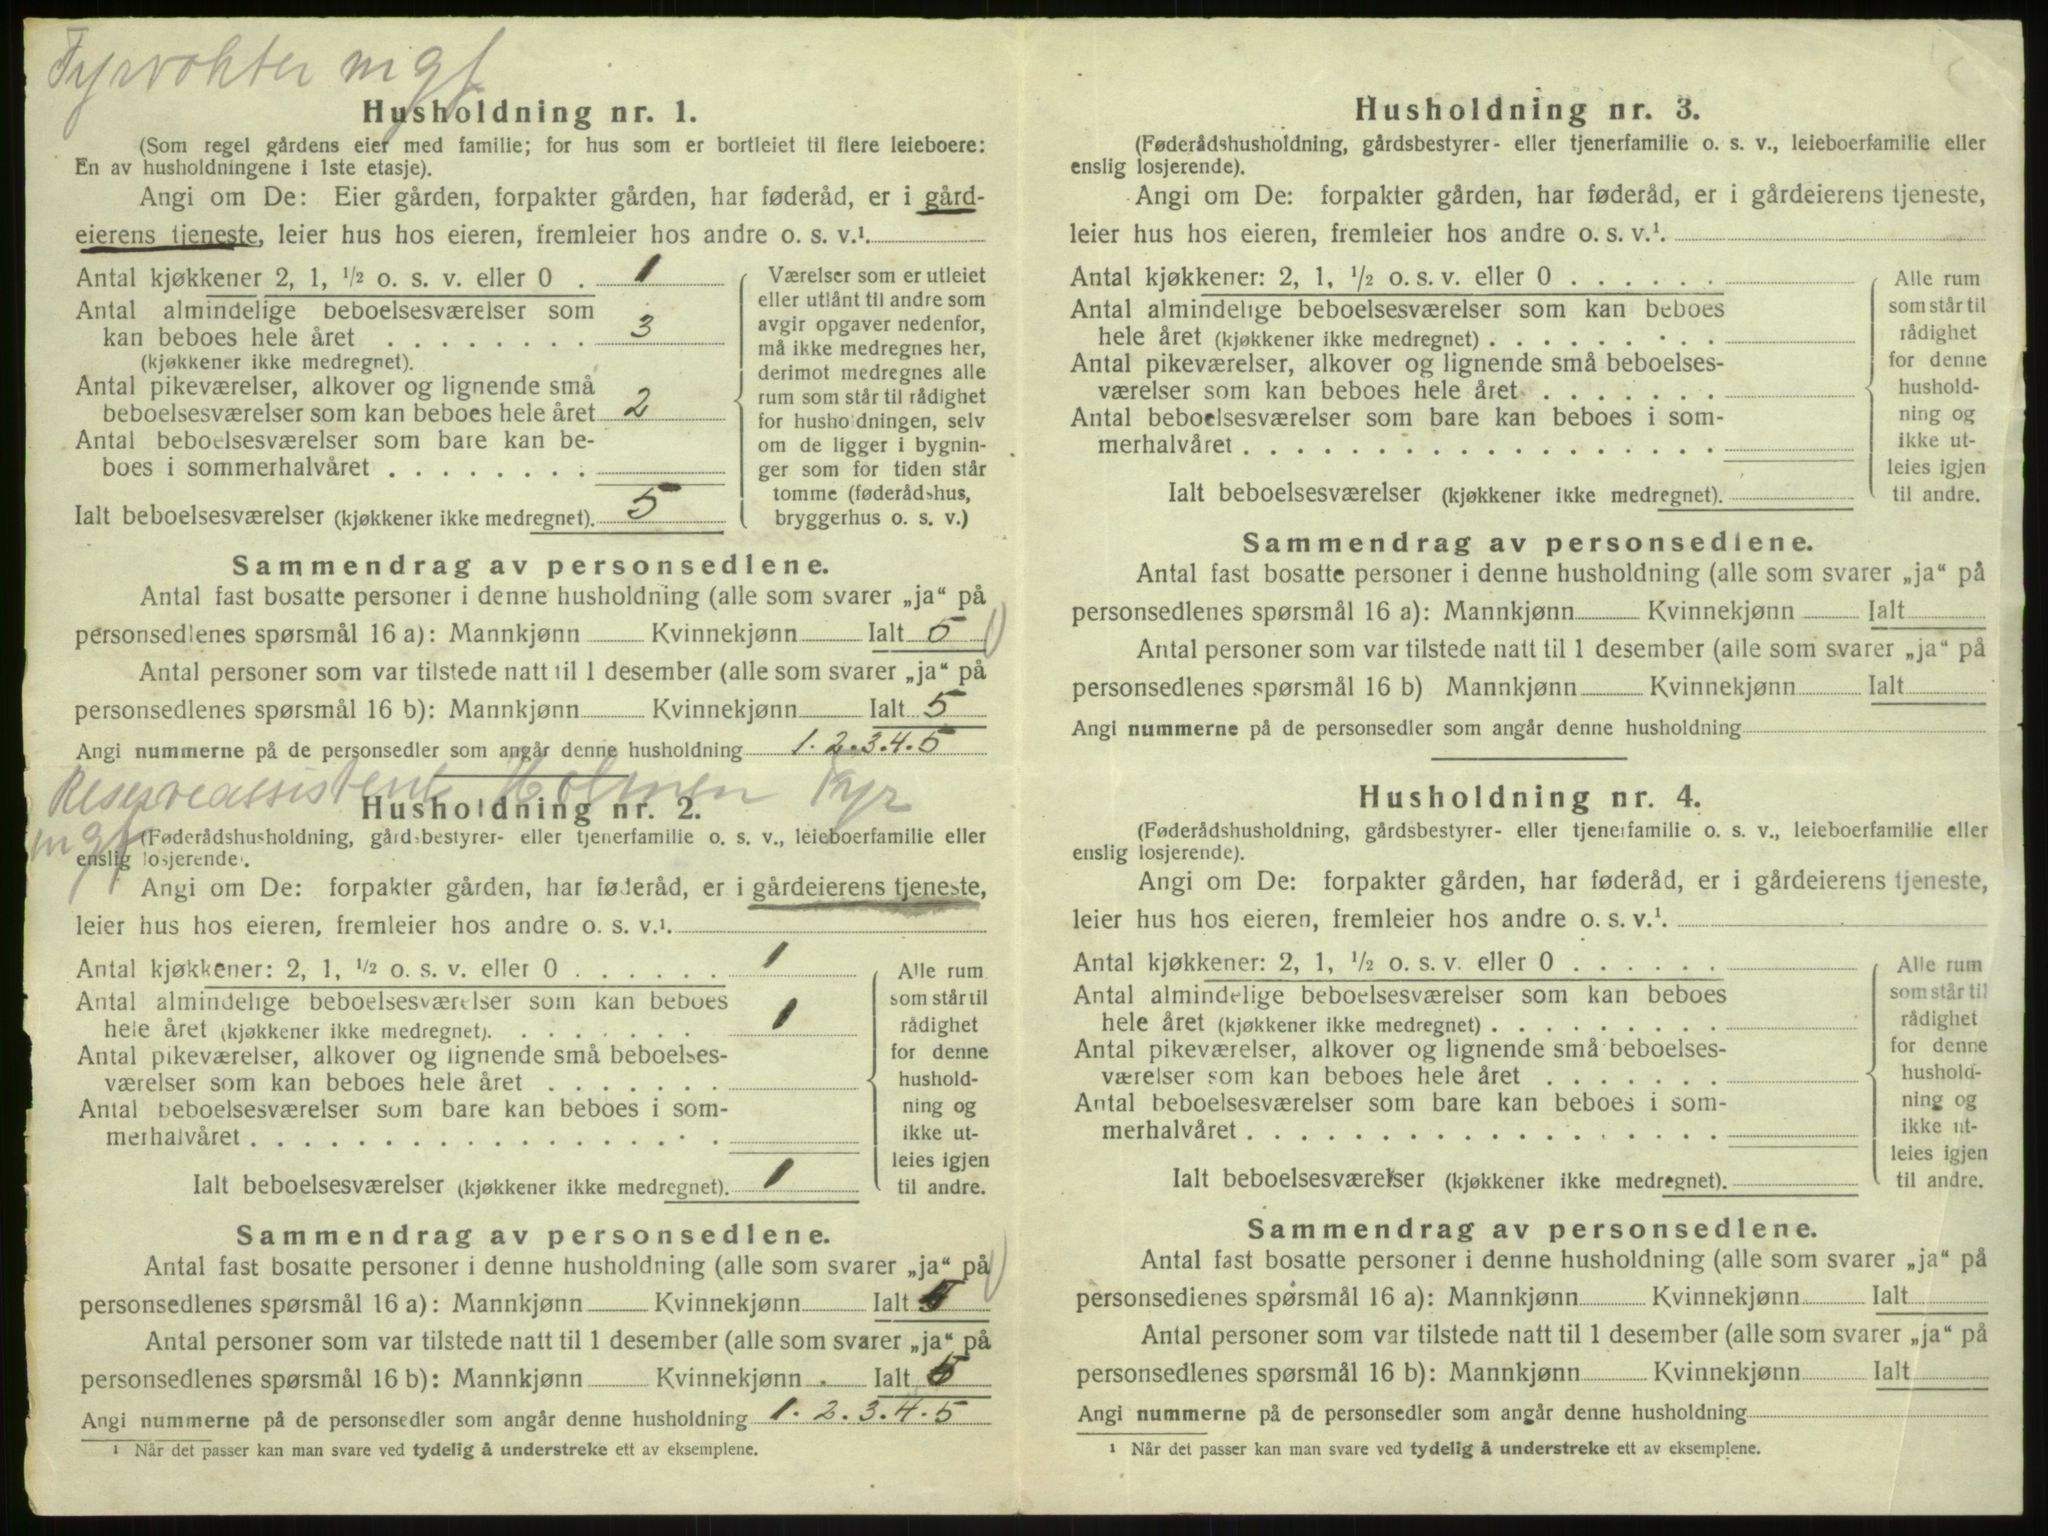 Fyrvokter m gf
Husholdning nr. 1.
(Som regel gårdens eier med familie; for hus som er bortleiet til flere leieboere:
En av husholdningene i 1ste etasje).
Angi om De: Eier gården, forpakter gården, har føderåd, er i gård-
eierens tjeneste, leier hus hos eieren, fremleier hos andre o. s. v.¹.
Antal kjøkkener 2, 1, ½ o. s. v. eller 0 . 1
Antal almindelige beboelsesværelser som
kan beboes hele året . . . . . . . . 3
(kjøkkener ikke medregnet).
Antal pikeværelser, alkover og lignende små
beboelsesværelser som kan beboes hele året 2
Antal beboelsesværelser som bare kan be-
boes i sommerhalvåret . . . . . . . .
Ialt beboelsesværelser (kjøkkener ikke medregnet). 5
Værelser som er utleiet
eller utlånt til andre som
avgir opgaver nedenfor,
må ikke medregnes her,
derimot medregnes alle
rum som står til rådighet
for husholdningen, selv
om de ligger i bygnin-
ger som for tiden står
tomme (føderådshus,
bryggerhus o. s. v.)
Sammendrag av personsedlene.
Antal fast bosatte personer i denne husholdning (alle som svarer „ja“ på
personsedlenes spørsmål 16 a): Mannkjønn Kvinnekjønn Ialt 5
Antal personer som var tilstede natt til 1 desember (alle som svarer „ja“ på
personsedlenes spørsmål 16 b): Mannkjønn Kvinnekjønn Ialt 5
Angi nummerne på de personsedler som angår denne husholdning 1. 2. 3. 4. 5
Reserveassistent Holmen Fyr
m gf
Husholdning nr. 2.
(Føderådshusholdning, gårdsbestyrer- eller tjenerfamilie o. s. v., leieboerfamilie eller
enslig losjerende).
Angi om De: forpakter gården, har føderåd, er i gårdeierens tjeneste,
leier hus hos eieren, fremleier hos andre o. s. v.¹.
Antal kjøkkener: 2, 1, ½ o. s. v. eller 0 . . . . . . 1
Antal almindelige beboelsesværelser som kan beboes
hele året (kjøkkener ikke medregnet). . . . . . . . 1
Antal pikeværelser, alkover og lignende små beboelses-
værelser som kan beboes hele året . . . . . . .
Antal beboelsesværelser som bare kan beboes i som-
merhalvåret . . . . . . . . . . . . . . . . .
Ialt beboelsesværelser (kjøkkener ikke medregnet). 1
Alle rum
som står til
rådighet
for denne
hushold-
ning og
ikke ut-
leies igjen
til andre.
Sammendrag av personsedlene.
Antal fast bosatte personer i denne husholdning (alle som svarer „ja“ på
personsedlenes spørsmål 16 a): Mannkjønn Kvinnekjønn Ialt 5
Antal personer som var tilstede natt til 1 desember (alle som svarer „ja“ på
personsedlenes spørsmål 16 b): Mannkjønn Kvinnekjønn Ialt 5
Angi nummerne på de personsedler som angår denne husholdning 1. 2. 3. 4. 5
¹ Når det passer kan man svare ved tydelig å understreke ett av eksemplene.
Husholdning nr. 3.
(Føderådshusholdning, gårdsbestyrer- eller tjenerfamilie o. s. v., leieboerfamilie eller
enslig losjerende).
Angi om De: forpakter gården, har føderåd, er i gårdeierens tjeneste,
leier hus hos eieren, fremleier hos andre o. s. v.¹.
Antal kjøkkener: 2, 1, ½ o. s. v. eller 0 . . . . . .
Antal almindelige beboelsesværelser som kan beboes
hele året (kjøkkener ikke medregnet) . . . . . . . . .
Antal pikeværelser, alkover og lignende små beboelses-
værelser som kan beboes hele året . . . . . . .
Antal beboelsesværelser som bare kan beboes i som-
merhalvåret . . . . . . . . . . . . . . . . . .
Ialt beboelsesværelser (kjøkkener ikke medregnet).
Alle rum
som står til
rådighet
for denne
hushold-
ning og
ikke ut-
leies igjen
til andre.
Sammendrag av personsedlene.
Antal fast bosatte personer i denne husholdning (alle som svarer „ja“ på
personsedlenes spørsmål 16 a): Mannkjønn Kvinnekjønn Ialt
Antal personer som var tilstede natt til 1 desember (alle som svarer „ja“ på
personsedlenes spørsmål 16 b) Mannkjønn Kvinnekjønn Ialt
Angi nummerne på de personsedler som angår denne husholdning
Husholdning nr. 4.
(Føderådshusholdning, gårdsbestyrer- eller tjenerfamilie o. s. v., leieboerfamilie eller
enslig losjerende).
Angi om De: forpakter gården, har føderåd, er i gårdeierens tjeneste,
leier hus hos eieren, fremleier hos andre o. s. v.¹.
Antal kjøkkener: 2, 1, ½ o. s. v. eller 0 . . . . . .
Antal almindelige beboelsesværelser som kan beboes
hele året (kjøkkener ikke medregnet) . . . . . . . . .
Antal pikeværelser, alkover og lignende små beboelses-
værelser som kan beboes hele året . . . . . . .
Antal beboelsesværelser som bare kan beboes i som-
merhalvåret . . . . . . . . . . . . . . . . . .
Ialt beboelsesværelser (kjøkkener ikke medregnet).
Alle rum
som står til
rådighet
for denne
hushold-
ning og
ikke ut-
leies igjen
til andre.
Sammendrag av personsedlene.
Antal fast bosatte personer i denne husholdning (alle som svarer „ja“ på
personsedlenes spørsmål 16 a): Mannkjønn Kvinnekjønn Ialt
Antal personer som var tilstede natt til 1 desember (alle som svarer „ja“ på
personsedlenes spørsmål 16 b): Mannkjønn Kvinnekjønn Ialt
Angi nummerne på de personsedler som angår denne husholdning
¹ Når det passer kan man svare ved tydelig å understreke ett av eksemplene.